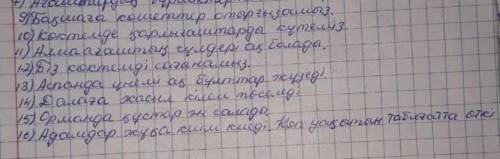 9) Бақшаға көшеттер отырғызамыз.
10) Көктемде қарлығаштарды күтеміз.
11) Алма ағаштың гүлдері ақ болады.
12) Біз көктемді сағынамыз.
13) Аспанда үнемі ақ бұлттар жүзеді.
14) Далаға жасыл кілем төселді.
15) Орманда құстар ән салады.
16) Адамдар жұқа киім киеді. Көп уақытын табиғатта өткі